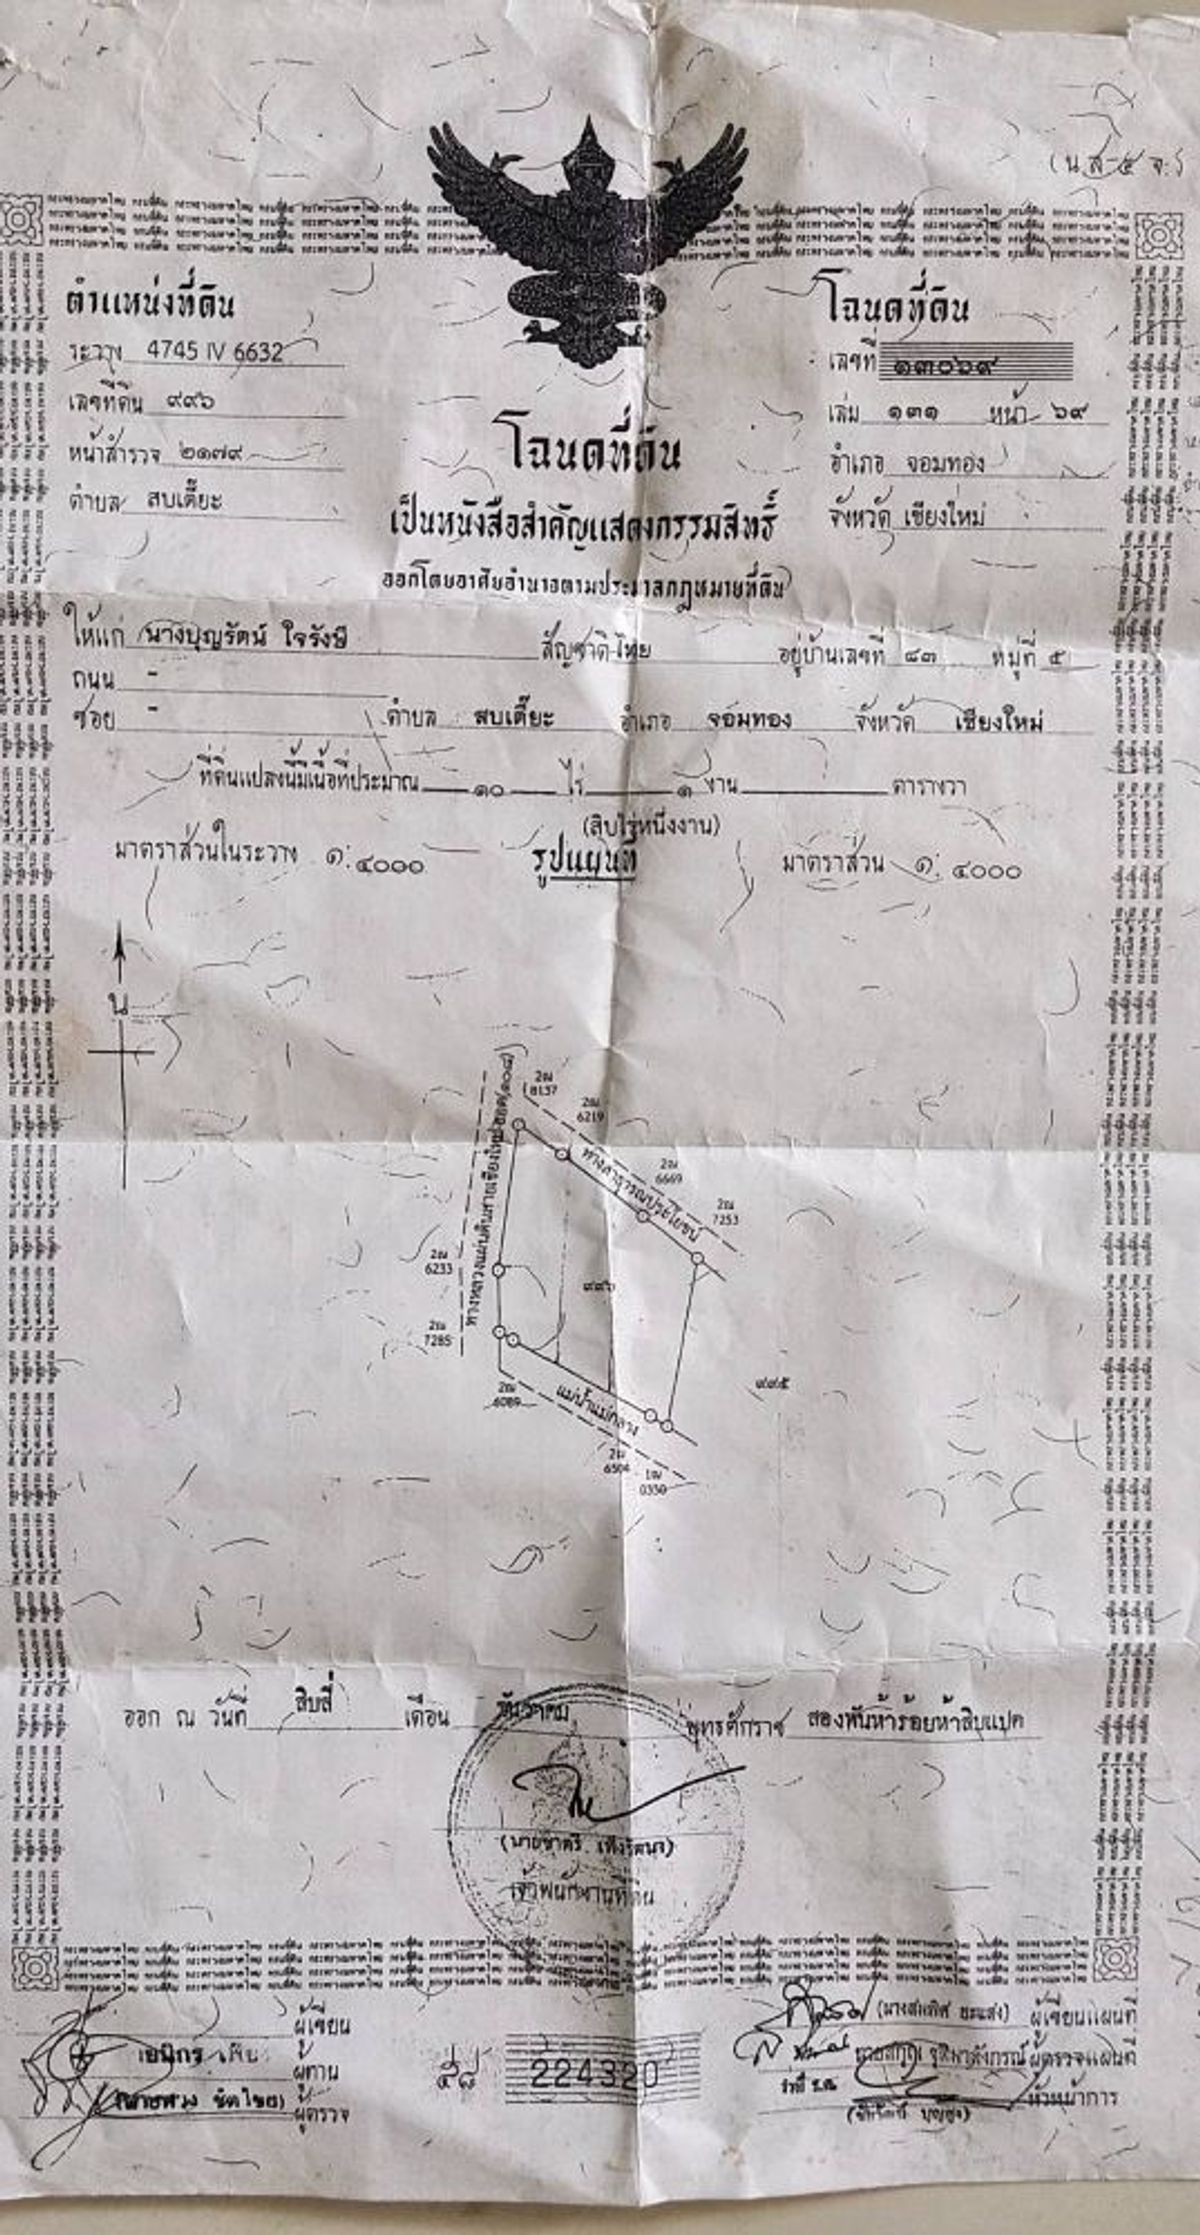 (น.ส.๔ จ.)
ตำแหน่งที่ดิน
ระวาง 4745 IV 6632
เลขที่ดิน ๙๙๖
หน้าสำรวจ ๒๑๗๙
ตำบล สบเตี๊ยะ
โฉนดที่ดิน
เลขที่ ๑๓๐๖๙
เล่ม ๑๓๑ หน้า ๖๙
อำเภอ จอมทอง
จังหวัด เชียงใหม่
โฉนดที่ดิน
เป็นหนังสือสำคัญแสดงกรรมสิทธิ์
ออกโดยอาศัยอำนาจตามประมวลกฎหมายที่ดิน
ให้แก่ นางบุญรัตน์ ใจรังษี สัญชาติ ไทย อยู่บ้านเลขที่ ๘๓ หมู่ที่ ๕
ถนน -
ซอย - ตำบล สบเตี๊ยะ อำเภอ จอมทอง จังหวัด เชียงใหม่
ที่ดินแปลงนี้มีเนื้อที่ประมาณ ๑๐ ไร่ ๑ งาน ตารางวา
(สิบไร่หนึ่งงาน)
มาตราส่วนในระวาง ๑:๔๐๐๐ รูปแผนที่ มาตราส่วน ๑:๔๐๐๐
น
ทางหลวงแผ่นดินสายเชียงใหม่-ฮอด(๑๐๘)
2ฌ 8137
2ฌ 6219
ทางสาธารณประโยชน์
2ฌ 6669
2ฌ 7253
2ฌ 6233
๙๙๖
2ฌ 7285
๙๙๕
2ฌ 6089
แม่น้ำแม่กลาง
2ฌ 6504
1ฌ 0350
ออก ณ วันที่ สิบสี่ เดือน ธันวาคม พุทธศักราช สองพันห้าร้อยห้าสิบแปด
เจ้าพนักงานที่ดิน
ผู้เขียน
ผู้ทาน
ผู้ตรวจ
๕๘ 224320
ผู้เขียนแผนที่
ผู้ตรวจแผนที่
หัวหน้าการ